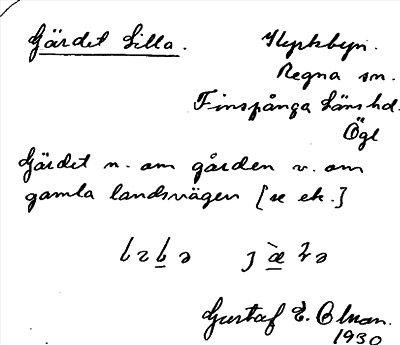 Gärdet Lilla.
Kyrkbyn.
Regna sn.
Finspånga läns hd.
Ögl
Gärdet n. om gården v. om
gamla landsvägen [se ek.]
Gustaf E. Olsson.
1930